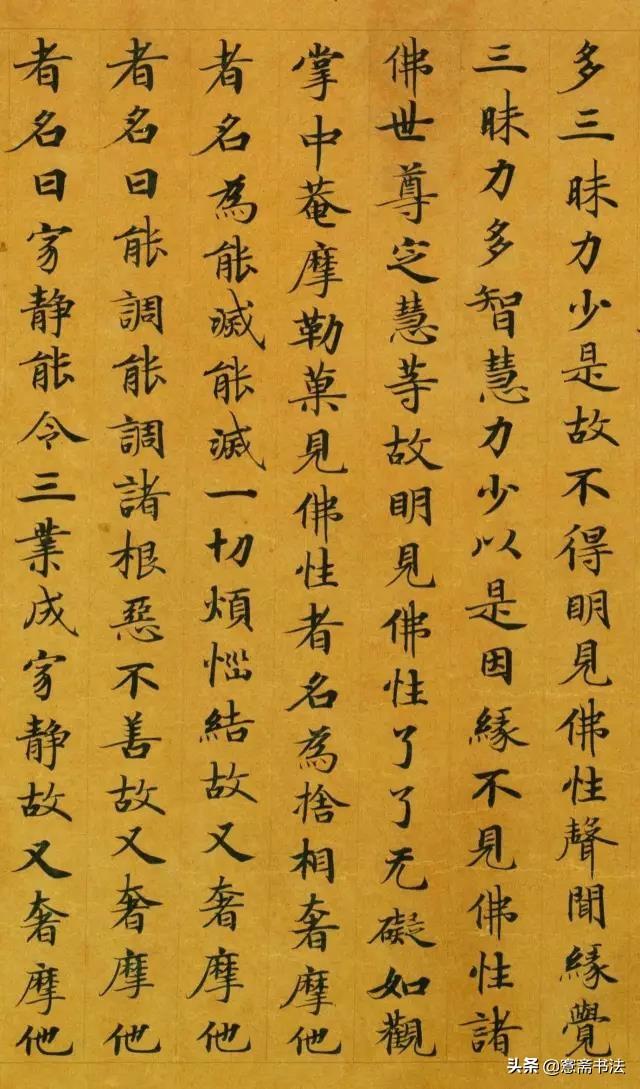 多三昧力少是故不得明見佛性聲聞緣覺
三昧力多智慧力少以是因緣不見佛性諸
佛世尊定慧等故明見佛性了了无礙如觀
掌中菴摩勒菓見佛性者名為捨相奢摩他
者名為能滅能滅一切煩惱結故又奢摩他
者名曰能調能調諸根惡不善故又奢摩他
者名曰寂静能令三業成寂静故又奢摩他
头条@窓斋书法